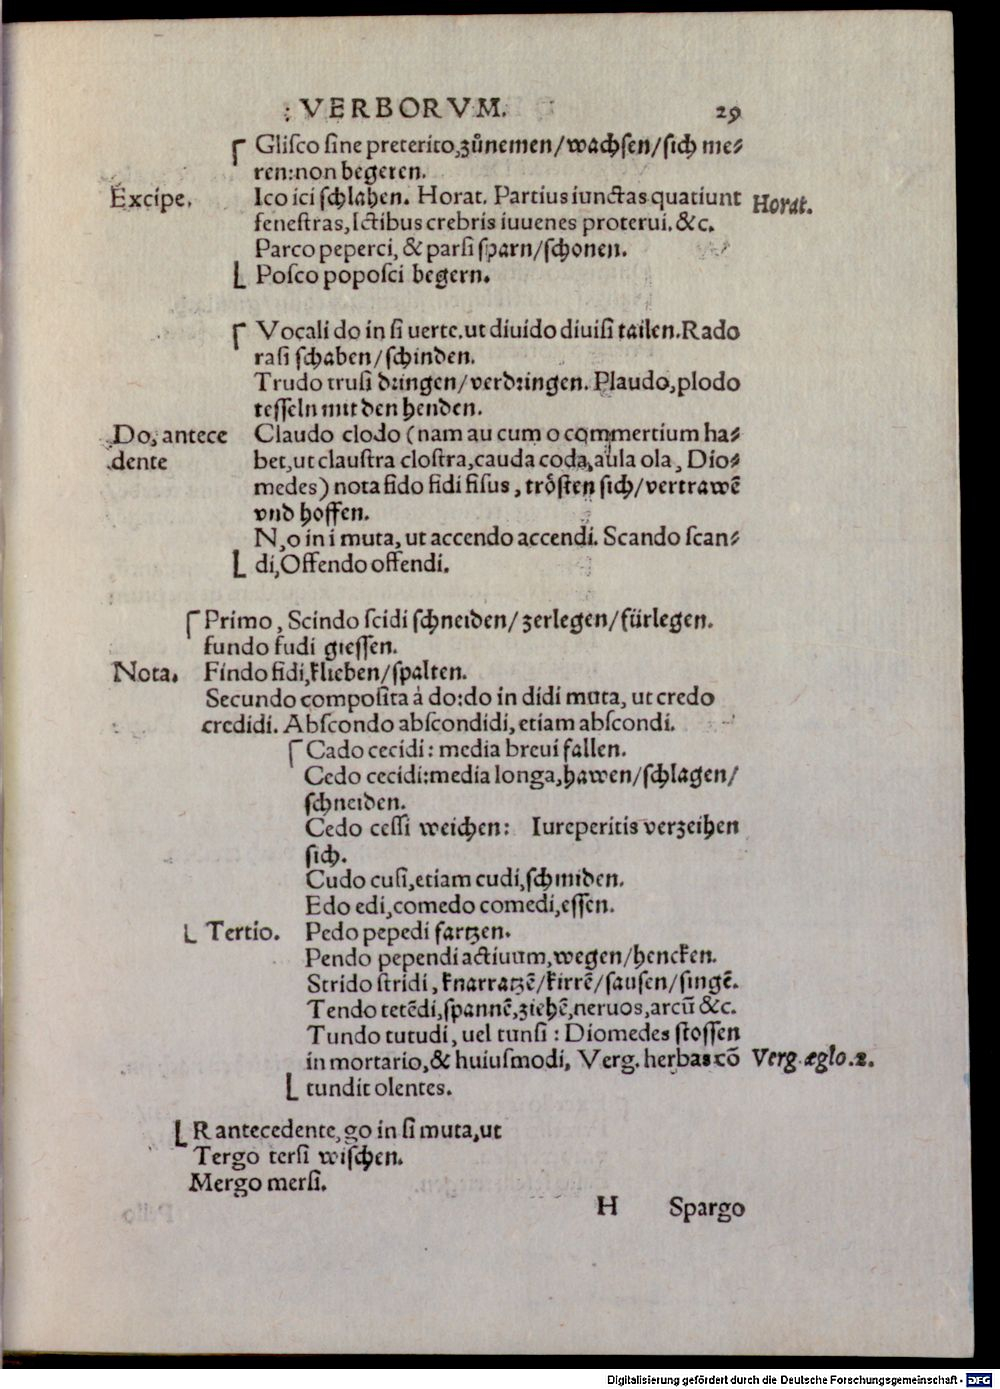 VERBORVM. 29
Gliſco ſine preterito,zůnemen/wachſen/ſich me⸗
ren:non begeren.
Excipe. Ico ici ſchlahen. Horat. Partius iunctas quatiunt Horat.
feneſtras, Ictibus crebris iuuenes proterui. &c.
Parco peperci, & parſi ſparn/ſchonen.
Poſco popoſci begern.
Vocali do in ſi uerte.ut diuido diuiſi tailen.Rado
raſi ſchaben/ſchinden.
Trudo truſi dringen/verdringen. Plaudo,plodo
teſſeln mit den henden.
Do, antece Claudo clodo (nam au cum o commertium ha⸗
dente bet,ut clauſtra cloſtra,cauda coda,aula ola, Dio⸗
medes) nota fido fidi fiſus, tröſten ſich/vertrawē
vnd hoffen.
N,o in i muta, ut accendo accendi. Scando ſcan⸗
di,Offendo offendi.
Primo, Scindo ſcidi ſchneiden/zerlegen/fürlegen.
fundo fudi gieſſen.
Nota. Findo fidi,klieben/ſpalten.
Secundo compoſita á do:do in didi muta, ut credo
credidi. Abſcondo abſcondidi, etiam abſcondi.
Cado cecidi: media breui fallen.
Cedo cecidi:media longa,hawen/ſchlagen/
ſchneiden.
Cedo ceſſi weichen: Iureperitis verzeihen
ſich.
Cudo cuſi,etiam cudi,ſchmiden.
Edo edi,comedo comedi,eſſen.
Tertio. Pedo pepedi fartzen.
Pendo pependi actiuum,wegen/hencken.
Strido ſtridi, knarratzē/kirrē/ſauſen/ſingē.
Tendo tetēdi,ſpannē,ziehē,neruos,arcū &c.
Tundo tutudi, uel tunſi: Diomedes ſtoſſen
in mortario,& huiuſmodi, Verg. herbas cō Verg.æglo.2.
tundit olentes.
R antecedente,go in ſi muta,ut
Tergo terſi wiſchen.
Mergo merſi.
H Spargo
Digitalisierung gefördert durch die Deutsche Forschungsgemeinschaft - DFG